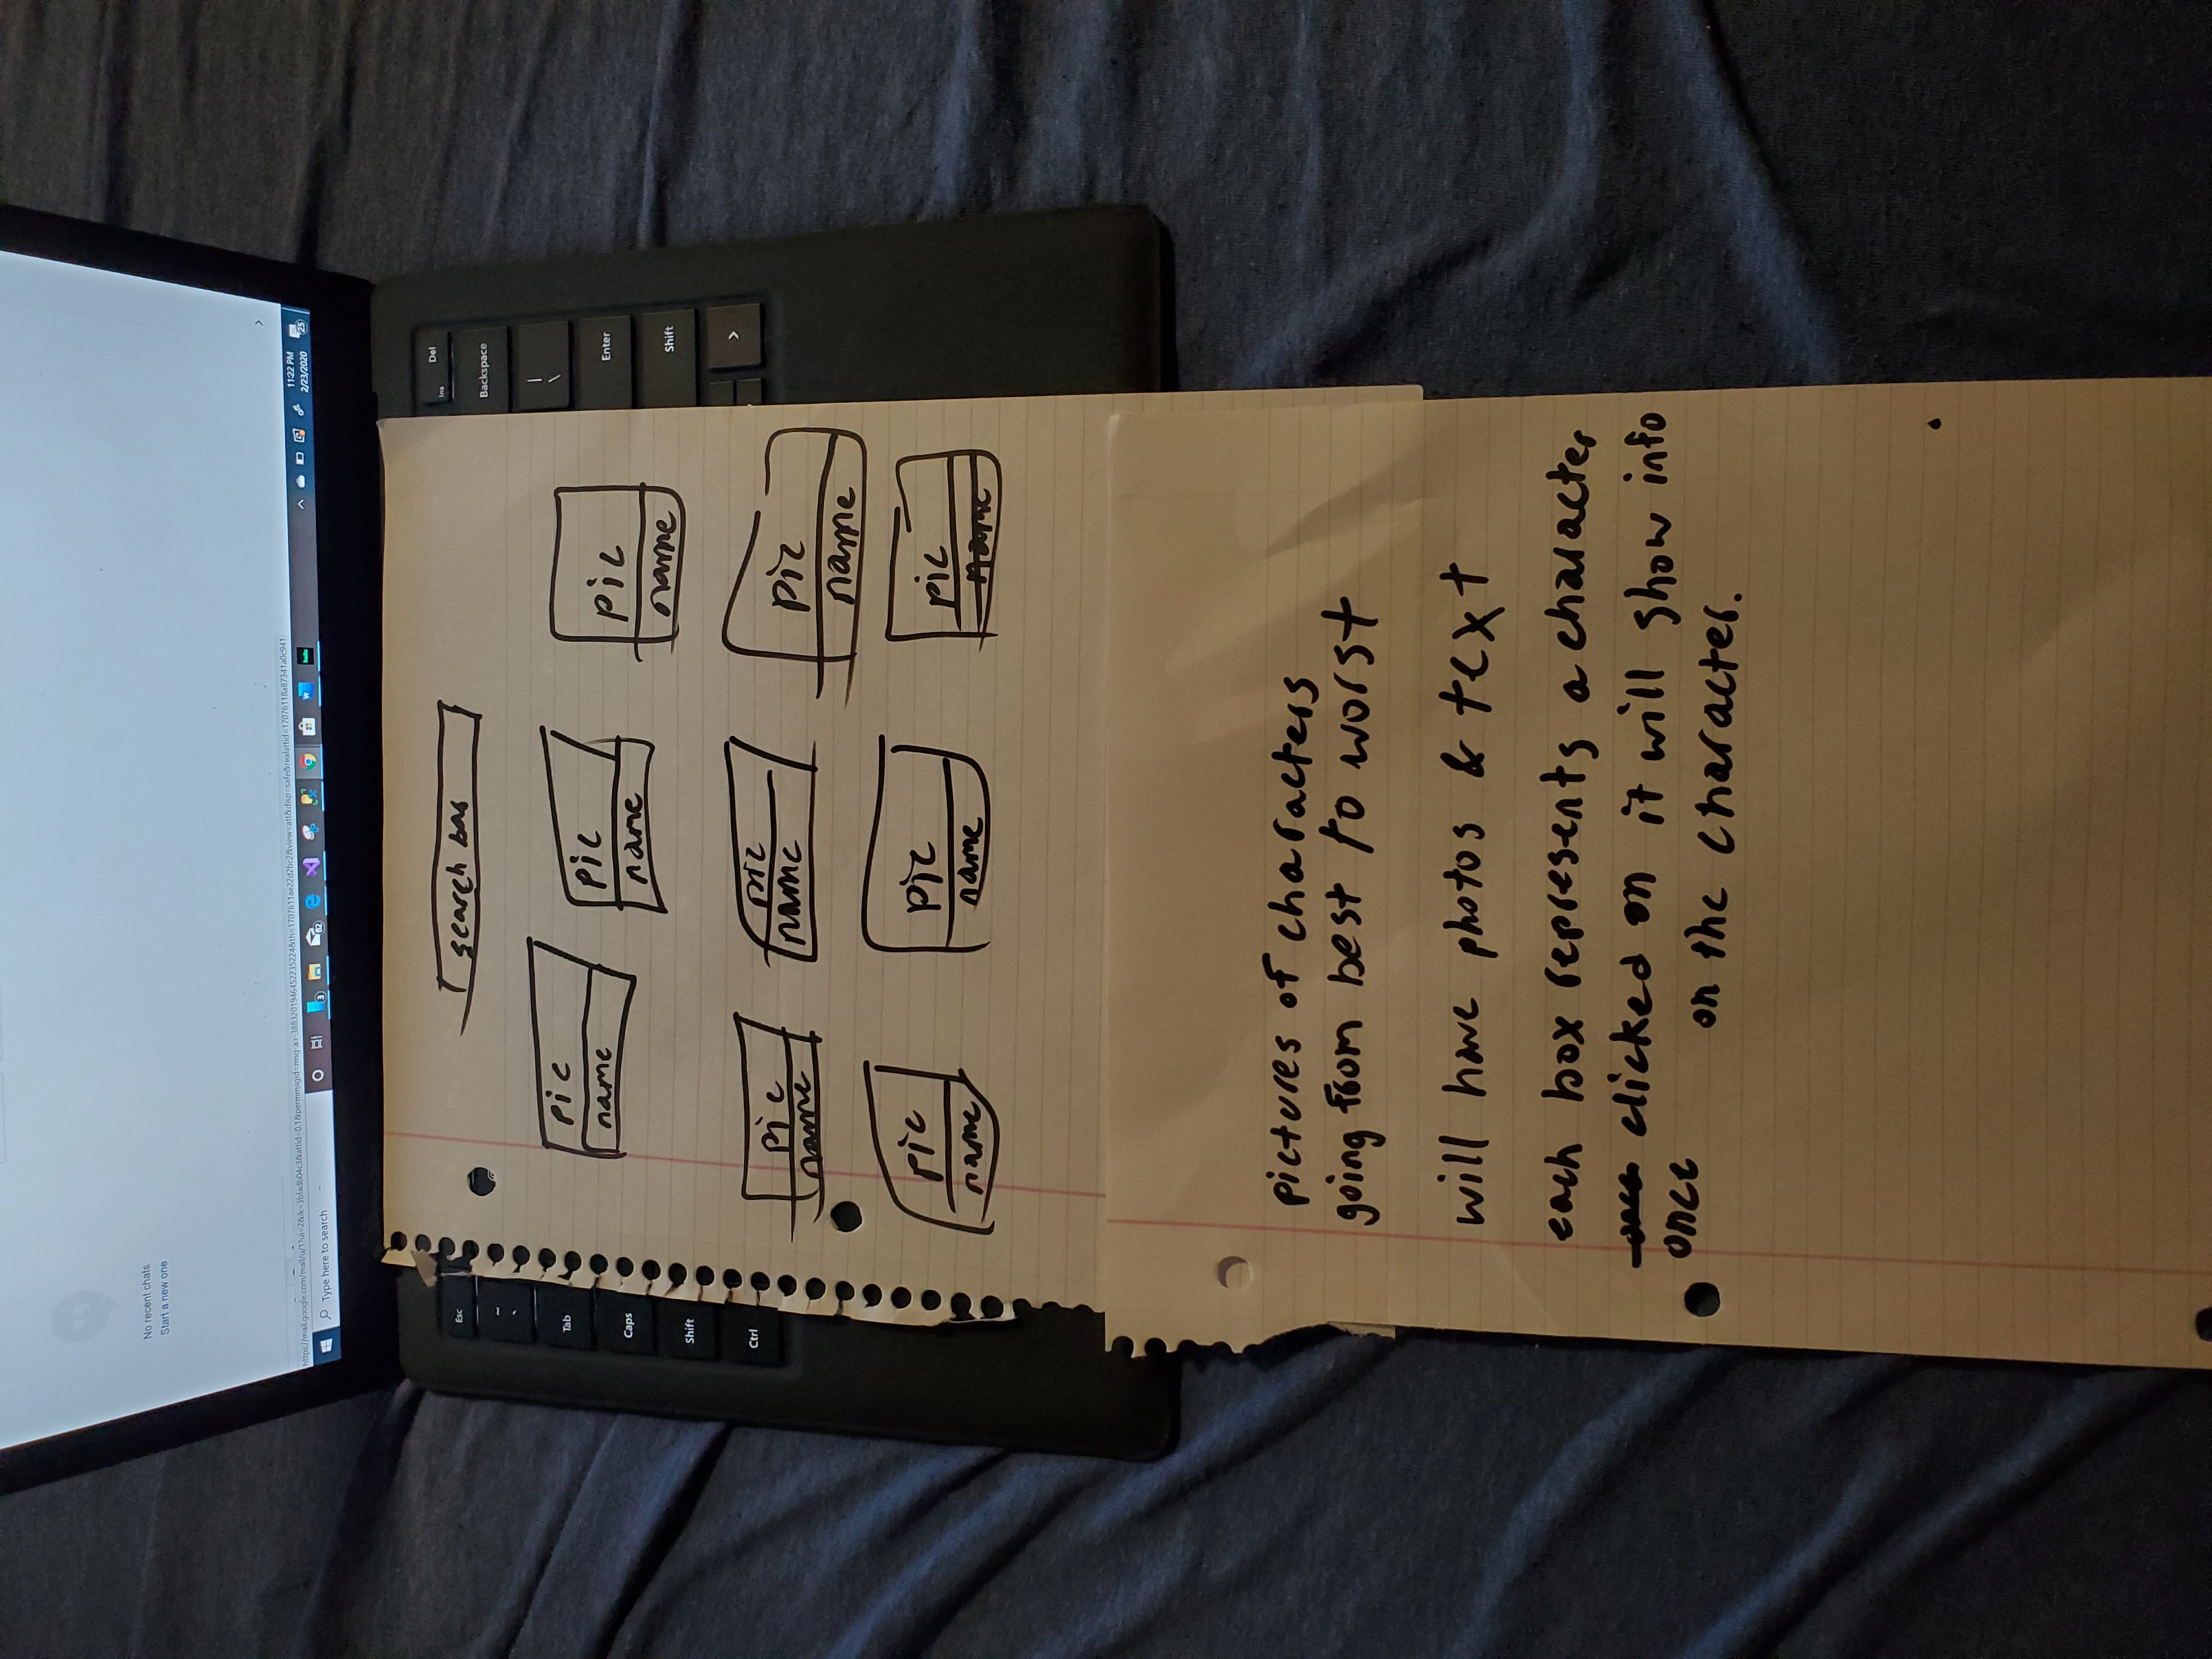 No recent chats
Start a new one
https://mail.google.com/mail/u/1?ui=2&ik=3bfadb04c3&attid=0.1&permmsgid=msg-a:r-3883201946452235224&th=1707611ae22d2bc2&view=att&disp=safe&realattid=17076118a87341a0c941
Type here to search
3
82
W
hulu
11:22 PM
2/23/2020
25
Esc
~
`
Tab
Caps
Shift
Ctrl
Ins
Del
Backspace
|
\
Enter
Shift
>
search bar
pic
name
pic
name
pic
name
pic
name
pic
name
pic
name
pic
name
pic
name
pic
name
pictures of characters
going from best to worst
will have photos & text
each box represents a character
once clicked on it will show info
once
on the character.